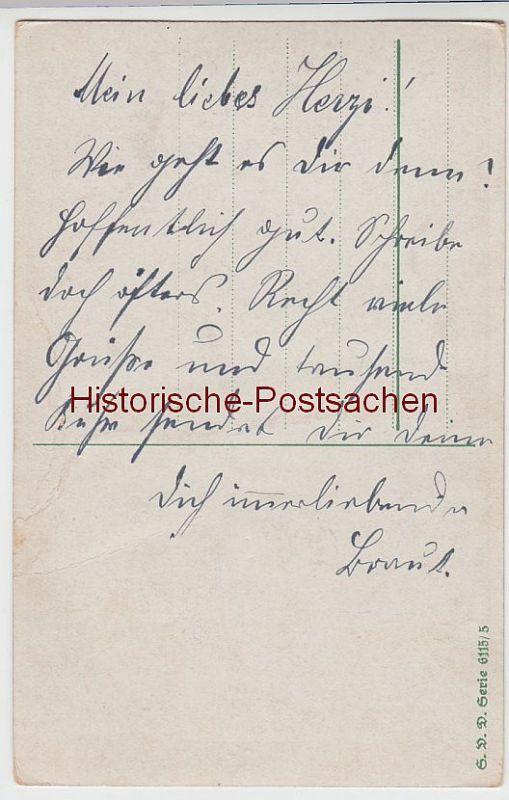 Mein liebes Herzi!
Wie geht es Dir denn?
Hoffentlich gut. Schreibe
doch öfters. Recht viele
Grüße und tausend
Historische-Postsachen
Küsse sendet Dir Deine
Dich immerliebende
Braut.
S. V. D. Serie 6115/5